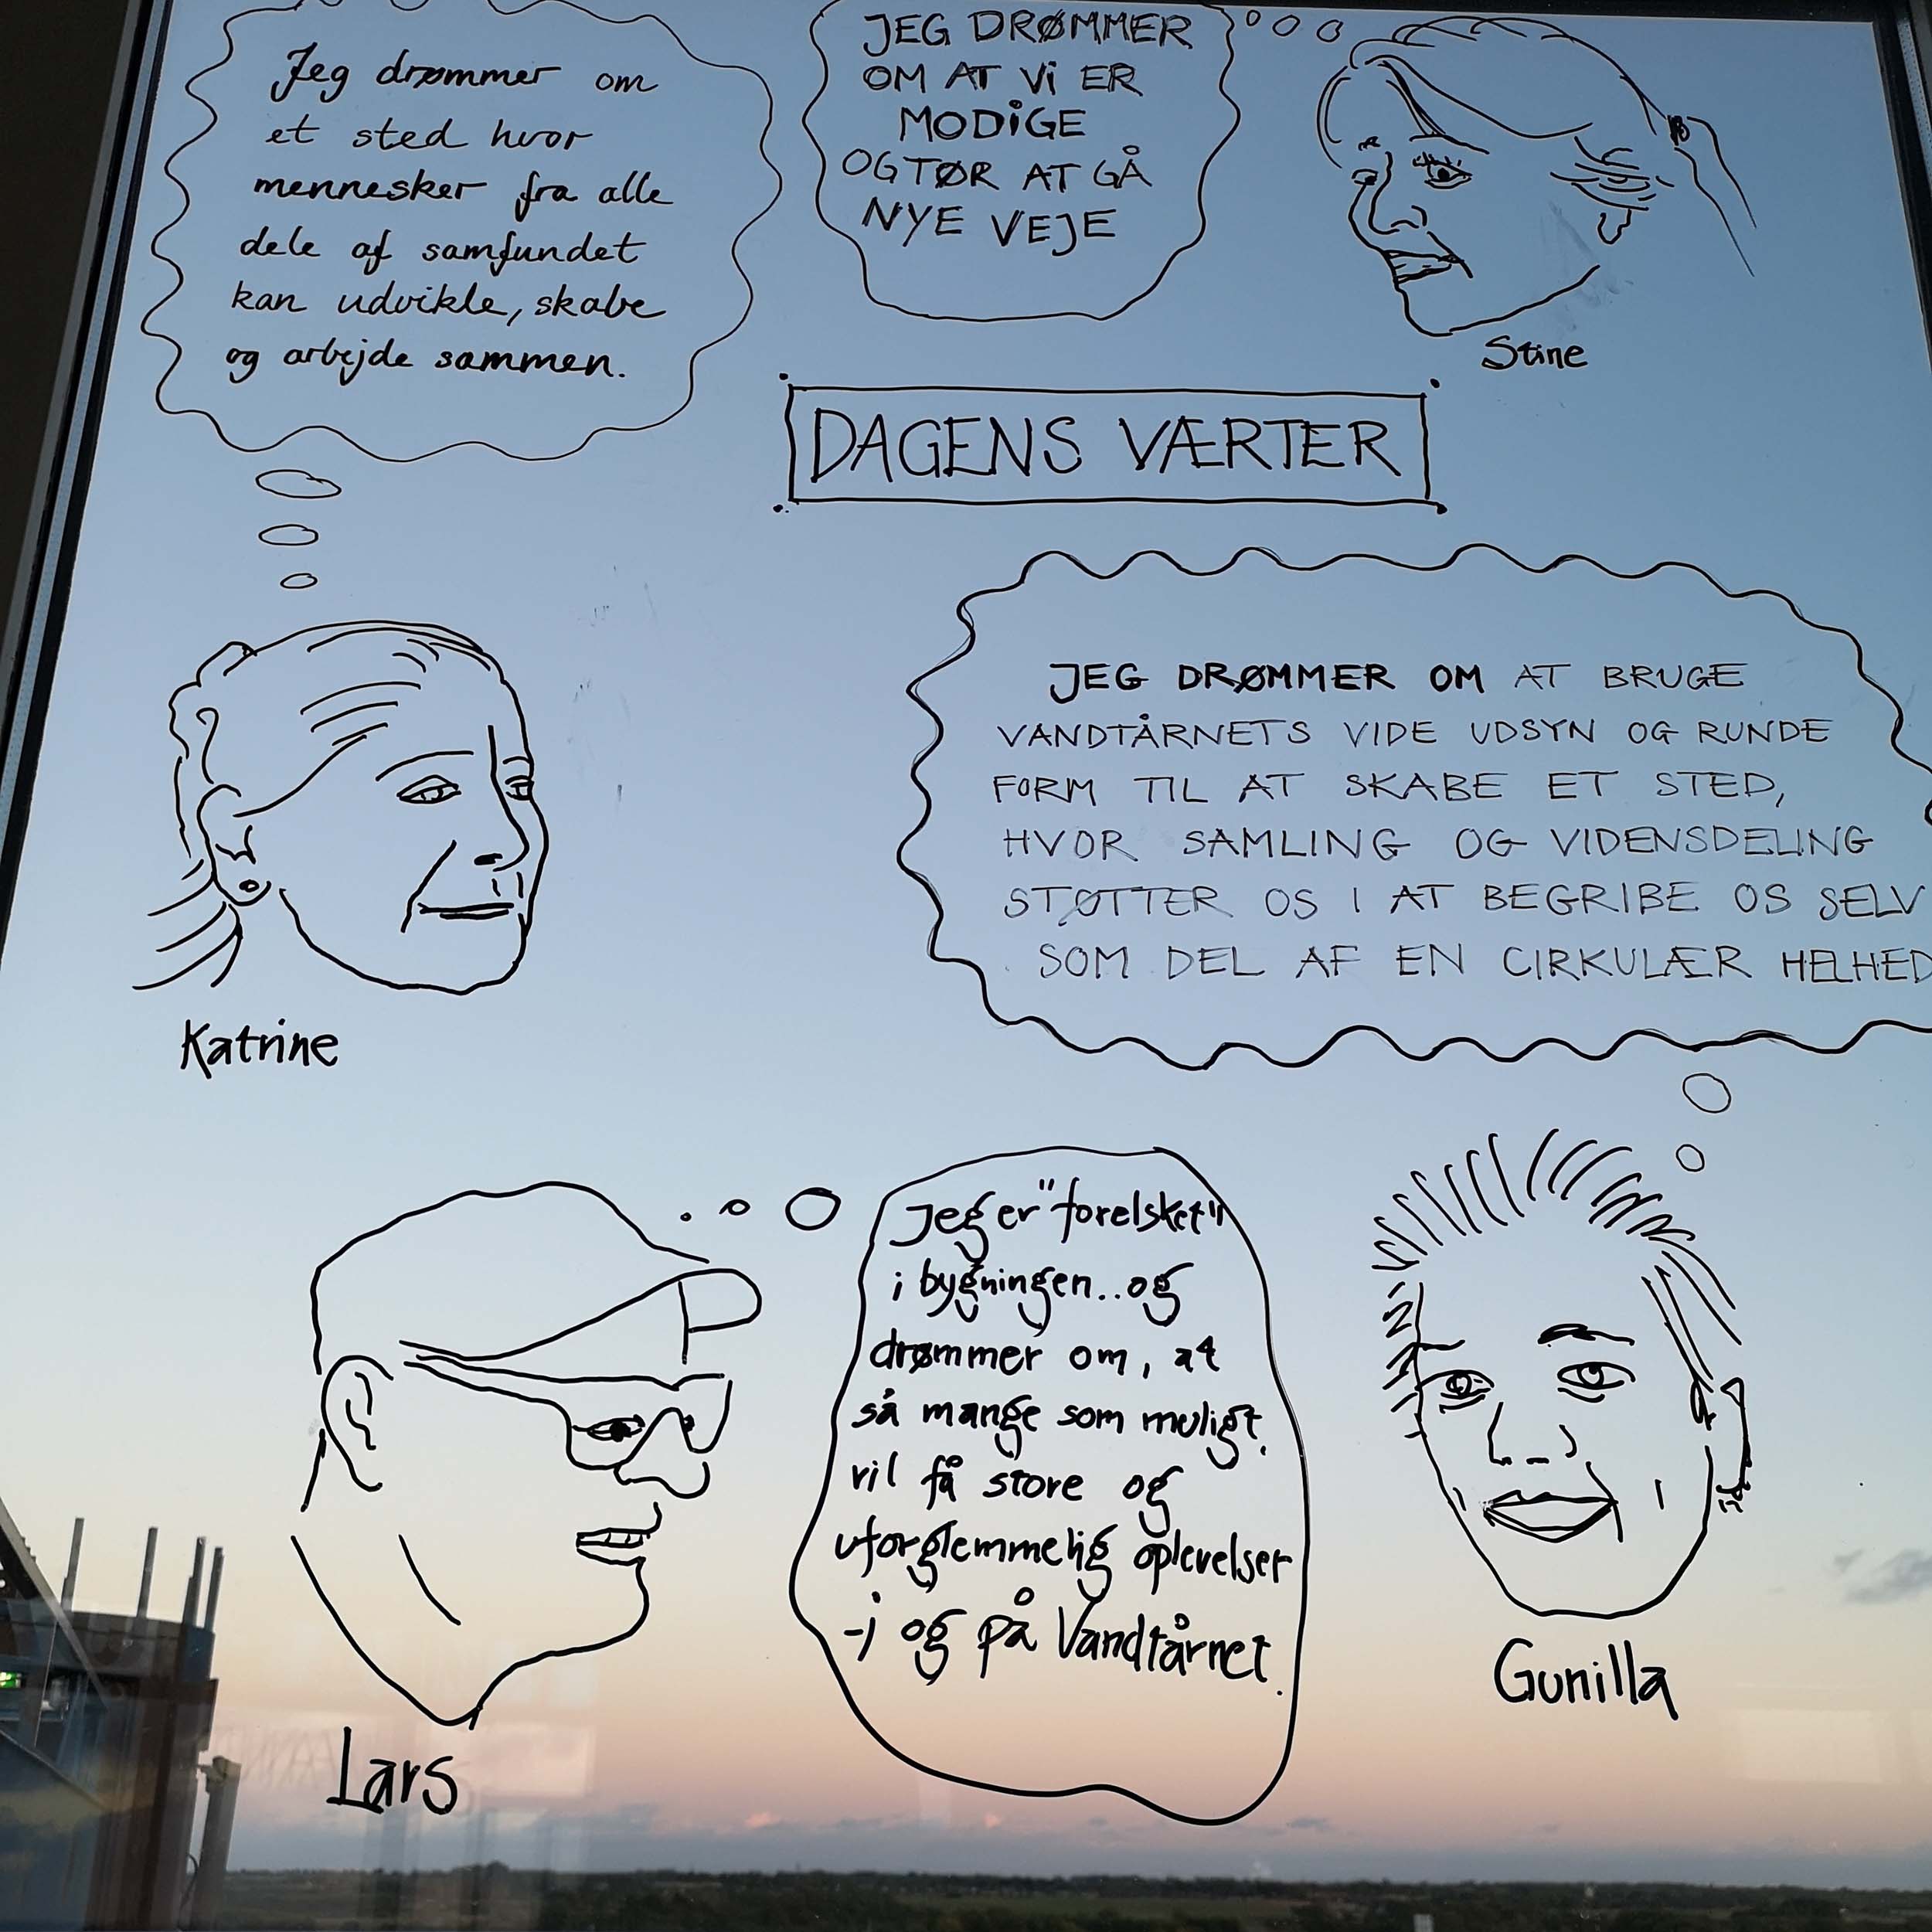 Jeg drømmer om
et sted hvor
mennesker fra alle
dele af samfundet
kan udvikle, skabe
og arbejde sammen.
JEG DRØMMER
OM AT Vi ER
MODiGE
OG TØR AT GÅ
NYE VEJE
Stine
DAGENS VÆRTER
Katrine
JEG DRØMMER OM AT BRUGE
VANDTÅRNETS VIDE UDSYN OG RUNDE
FORM TIL AT SKABE ET STED,
HVOR SAMLING OG VIDENSDELING
STØTTER OS I AT BEGRIBE OS SELV
SOM DEL AF EN CIRKULÆR HELHED
Jeg er "forelsket"
i bygningen.. og
drømmer om, at
så mange som muligt
vil få store og
uforglemmelig oplevelser
-i og på Vandtårnet.
Lars
Gunilla